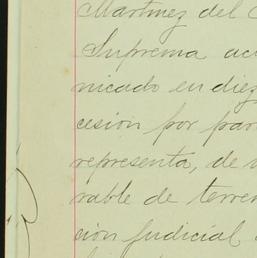 Martinez del
Suprema
nicado en diez
cesión por par
representa, de
rable de terren
ción Judicial